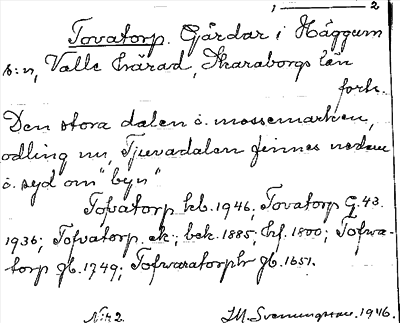 1 — 2
Tovatorp. Gårdar i Häggum
s:n, Valle härad, Skaraborgs län
forts.
Den stora dalen o. mossemarken,
odling nu, Tjuvadalen finnes nedom
o. syd om "byn"
Tofvatorp kb. 1946; Tovatorp G. 43.
1936; Tofvatorp. ek.; bek. 1885; hf. 1800; Tofwa-
torp gb. 1749; Tofwaratorp gb. 1651.
N:r 2 J.M. Svenungsson. 1946.